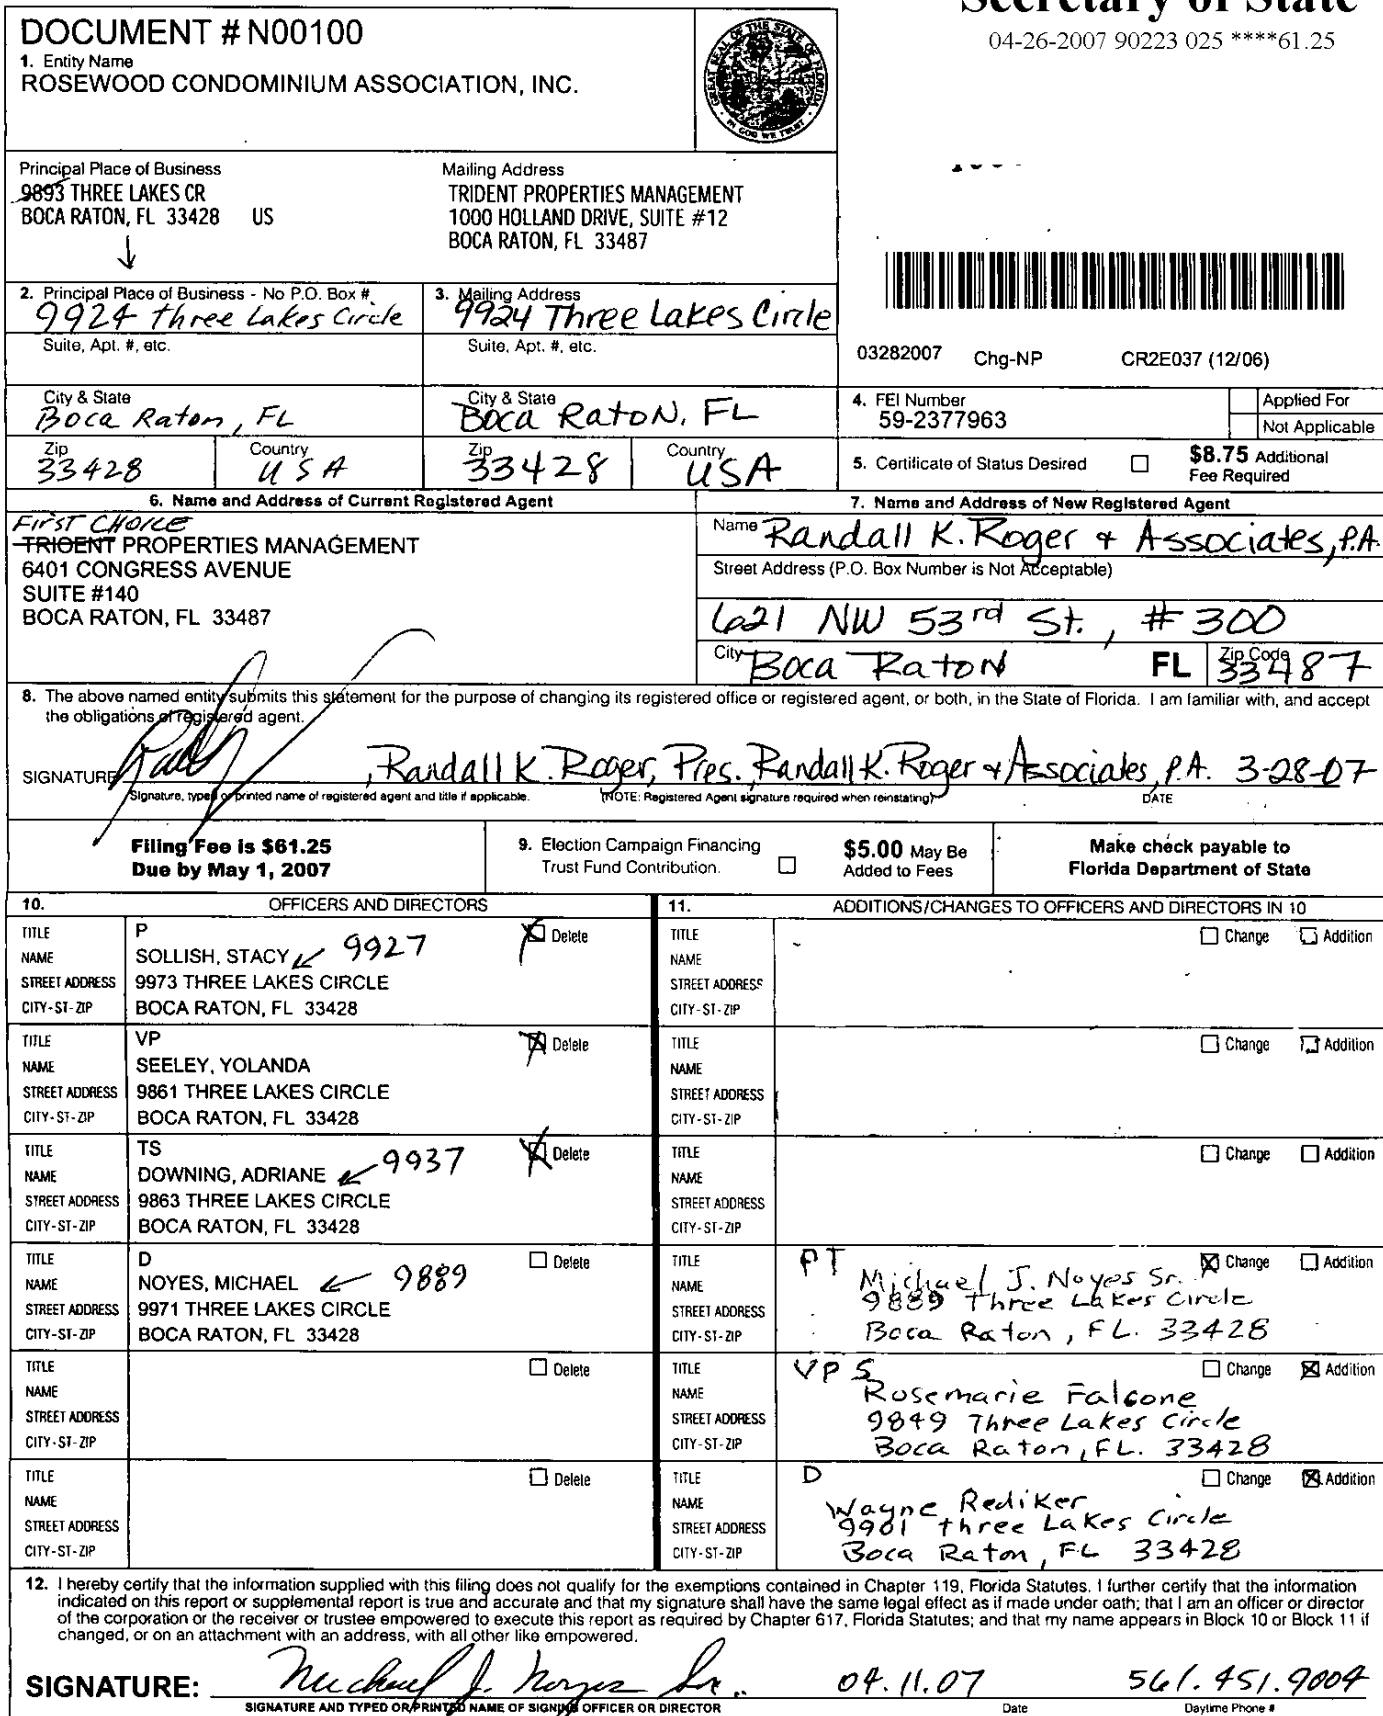 Secretary of State
04-26-2007 90223 025 ****61.25
DOCUMENT # N00100
1. Entity Name
ROSEWOOD CONDOMINIUM ASSOCIATION, INC.
GREAT SEAL OF THE STATE OF FLORIDA
IN GOD WE TRUST
Principal Place of Business
9893 THREE LAKES CR
BOCA RATON, FL 33428 US
Mailing Address
TRIDENT PROPERTIES MANAGEMENT
1000 HOLLAND DRIVE, SUITE #12
BOCA RATON, FL 33487
2. Principal Place of Business - No P.O. Box #
9924 three Lakes Circle
Suite, Apt. #, etc.
City & State
Boca Raton, FL
Zip
33428
Country
USA
3. Mailing Address
9924 Three Lakes Circle
Suite, Apt. #, etc.
City & State
Boca Raton, FL
Zip
33428
Country
USA
03282007 Chg-NP CR2E037 (12/06)
4. FEI Number
59-2377963
Applied For
Not Applicable
5. Certificate of Status Desired
$8.75 Additional
Fee Required
6. Name and Address of Current Registered Agent
First CHOICE
TRIDENT PROPERTIES MANAGEMENT
6401 CONGRESS AVENUE
SUITE #140
BOCA RATON, FL 33487
7. Name and Address of New Registered Agent
Name Randall K. Roger + Associates, P.A.
Street Address (P.O. Box Number is Not Acceptable)
621 NW 53rd St., #300
City Boca Raton FL Zip Code 33487
8. The above named entity submits this statement for the purpose of changing its registered office or registered agent, or both, in the State of Florida. I am familiar with, and accept
the obligations of registered agent.
SIGNATURE , Randall K. Roger, Pres. Randall K. Roger + Associates, P.A. 3-28-07
Signature, typed or printed name of registered agent and title if applicable. (NOTE: Registered Agent signature required when reinstating) DATE
Filing Fee is $61.25
Due by May 1, 2007
9. Election Campaign Financing
Trust Fund Contribution.
$5.00 May Be
Added to Fees
Make check payable to
Florida Department of State
10. OFFICERS AND DIRECTORS
11. ADDITIONS/CHANGES TO OFFICERS AND DIRECTORS IN 10
TITLE P Delete
NAME SOLLISH, STACY 9927
STREET ADDRESS 9973 THREE LAKES CIRCLE
CITY-ST-ZIP BOCA RATON, FL 33428
TITLE Change Addition
NAME
STREET ADDRESS
CITY-ST-ZIP
TITLE VP Delete
NAME SEELEY, YOLANDA
STREET ADDRESS 9861 THREE LAKES CIRCLE
CITY-ST-ZIP BOCA RATON, FL 33428
TITLE Change Addition
NAME
STREET ADDRESS
CITY-ST-ZIP
TITLE TS Delete
NAME DOWNING, ADRIANE 9937
STREET ADDRESS 9863 THREE LAKES CIRCLE
CITY-ST-ZIP BOCA RATON, FL 33428
TITLE Change Addition
NAME
STREET ADDRESS
CITY-ST-ZIP
TITLE D Delete
NAME NOYES, MICHAEL 9889
STREET ADDRESS 9971 THREE LAKES CIRCLE
CITY-ST-ZIP BOCA RATON, FL 33428
TITLE PT Change Addition
NAME Michael J. Noyes Sr.
STREET ADDRESS 9889 Three Lakes Circle
CITY-ST-ZIP Boca Raton, FL. 33428
TITLE Delete
NAME
STREET ADDRESS
CITY-ST-ZIP
TITLE VP S Change Addition
NAME Rosemarie Falcone
STREET ADDRESS 9849 Three Lakes Circle
CITY-ST-ZIP Boca Raton, FL. 33428
TITLE Delete
NAME
STREET ADDRESS
CITY-ST-ZIP
TITLE D Change Addition
NAME Wayne Rediker
STREET ADDRESS 9901 three Lakes Circle
CITY-ST-ZIP Boca Raton, FL 33428
12. I hereby certify that the information supplied with this filing does not qualify for the exemptions contained in Chapter 119, Florida Statutes. I further certify that the information
indicated on this report or supplemental report is true and accurate and that my signature shall have the same legal effect as if made under oath; that I am an officer or director
of the corporation or the receiver or trustee empowered to execute this report as required by Chapter 617, Florida Statutes; and that my name appears in Block 10 or Block 11 if
changed, or on an attachment with an address, with all other like empowered.
SIGNATURE: Michael J. Noyes Sr. 04.11.07 561.451.9004
SIGNATURE AND TYPED OR PRINTED NAME OF SIGNING OFFICER OR DIRECTOR Date Daytime Phone #